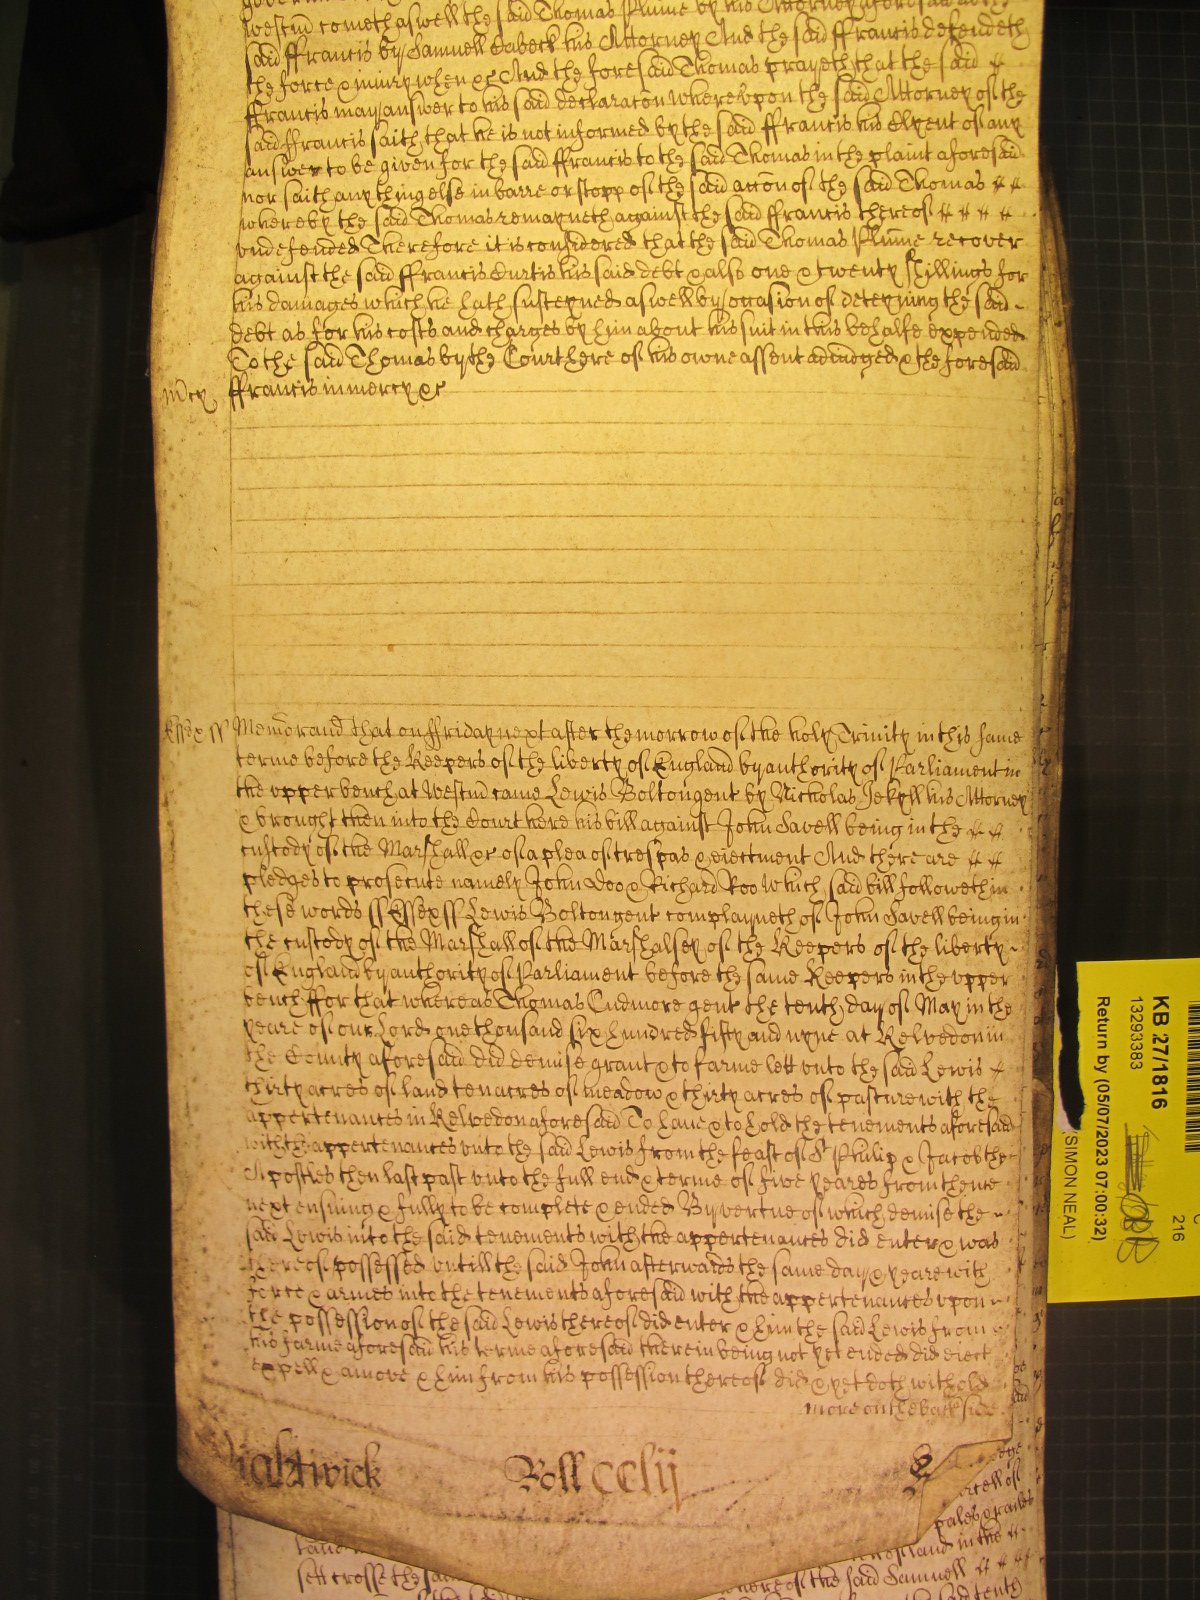 Westm̄ cometh aswell the said Thomas Plume by his Attorney aforesaid as the
said ffrancis by Samuell his Attorney And the said ffrancis defendeth
the force & iniury when &c And the foresaid Thomas prayeth that the said
ffrancis may answer to his said declaracōn wherevpon the said Attorney of the
said ffrancis saith that he is not informed by the said ffrancis his Clyent of any
answer to be given for the said ffrancis to the said Thomas in the plaint aforesaid
nor saith any thing else in barre or stopp of the said accōn of the said Thomas
whereby the said Thomas remayneth against the said ffrancis thereof
vndefended Therefore it is considered that the said Thomas Plume recover
against the said ffrancis Curtis his said debt & also one & twenty shillings for
his damages which he hath susteyned aswell by occasion of deteyning the said
debt as for his costs and charges by him about his suit in this behalfe expended
To the said Thomas by the Court here of his owne assent adiudged & the foresaid
m̄cy ffrancis in mercy &c
Essex ss Memorand that on ffriday next after the morrow of the holy Trinity in this same
terme before the Keepers of the liberty of England by authority of Parliament in
the vpper bench at Westm̄ came Lewis Bolton gent by Nicholas Jekyll his Attorney
& brought then into the Court here his bill against John Savell being in the
custody of the Marshall &c of a plea of trespas & eiectment And there are
pledges to prosecute namely John Doo & Richard Roo Which said bill followeth in
these words ss Essex ss Lewis Bolton gent complayneth of John Savell being in
the custody of the Marshall of the Marshalsey of the Keepers of the liberty
of England by authority of Parliament before the same Keepers in the vpper
bench ffor that whereas Thomas Cudmore gent the tenth day of May in the
yeare of our Lord one thousand six hundred fifty and nyne at Kelvedon in
the County aforesaid did demise grant & to farme lett vnto the said Lewis
thirty acres of land ten acres of meadow & thirty acres of pasture with the
appertenances in Kelvedon aforesaid To haue & to hold the tenements aforesaid
with the appertenances vnto the said Lewis from the feast of St Philip & Jacob the
Apostles then last past vnto the full end & terme of five yeares from thence
next ensuing & fully to be complete & ended By vertue of which demise the
said Lewis into the said tenements with the appertenances did enter & was
thereof possessed vntill the said John afterwards the same day & yeare with
force & armes into the tenements aforesaid with the appertenances vpon
the possession of the said Lewis thereof did enter & him the said Lewis from
his farme aforesaid his terme aforesaid therein being not yet ended did eiect
expell & amove & him from his possession thereof did & yet doth withold
more on the back side
Roll cclij
sett crosse the
whereof the said Samuell
KB 27/1816
13293383
Return by (05/07/2023 07:00:32)
(SIMON NEAL)
216